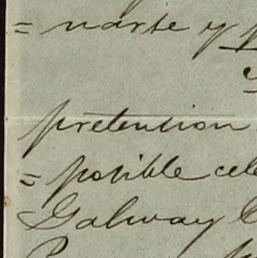 = narse y
pretention
= posible cele
Galway C